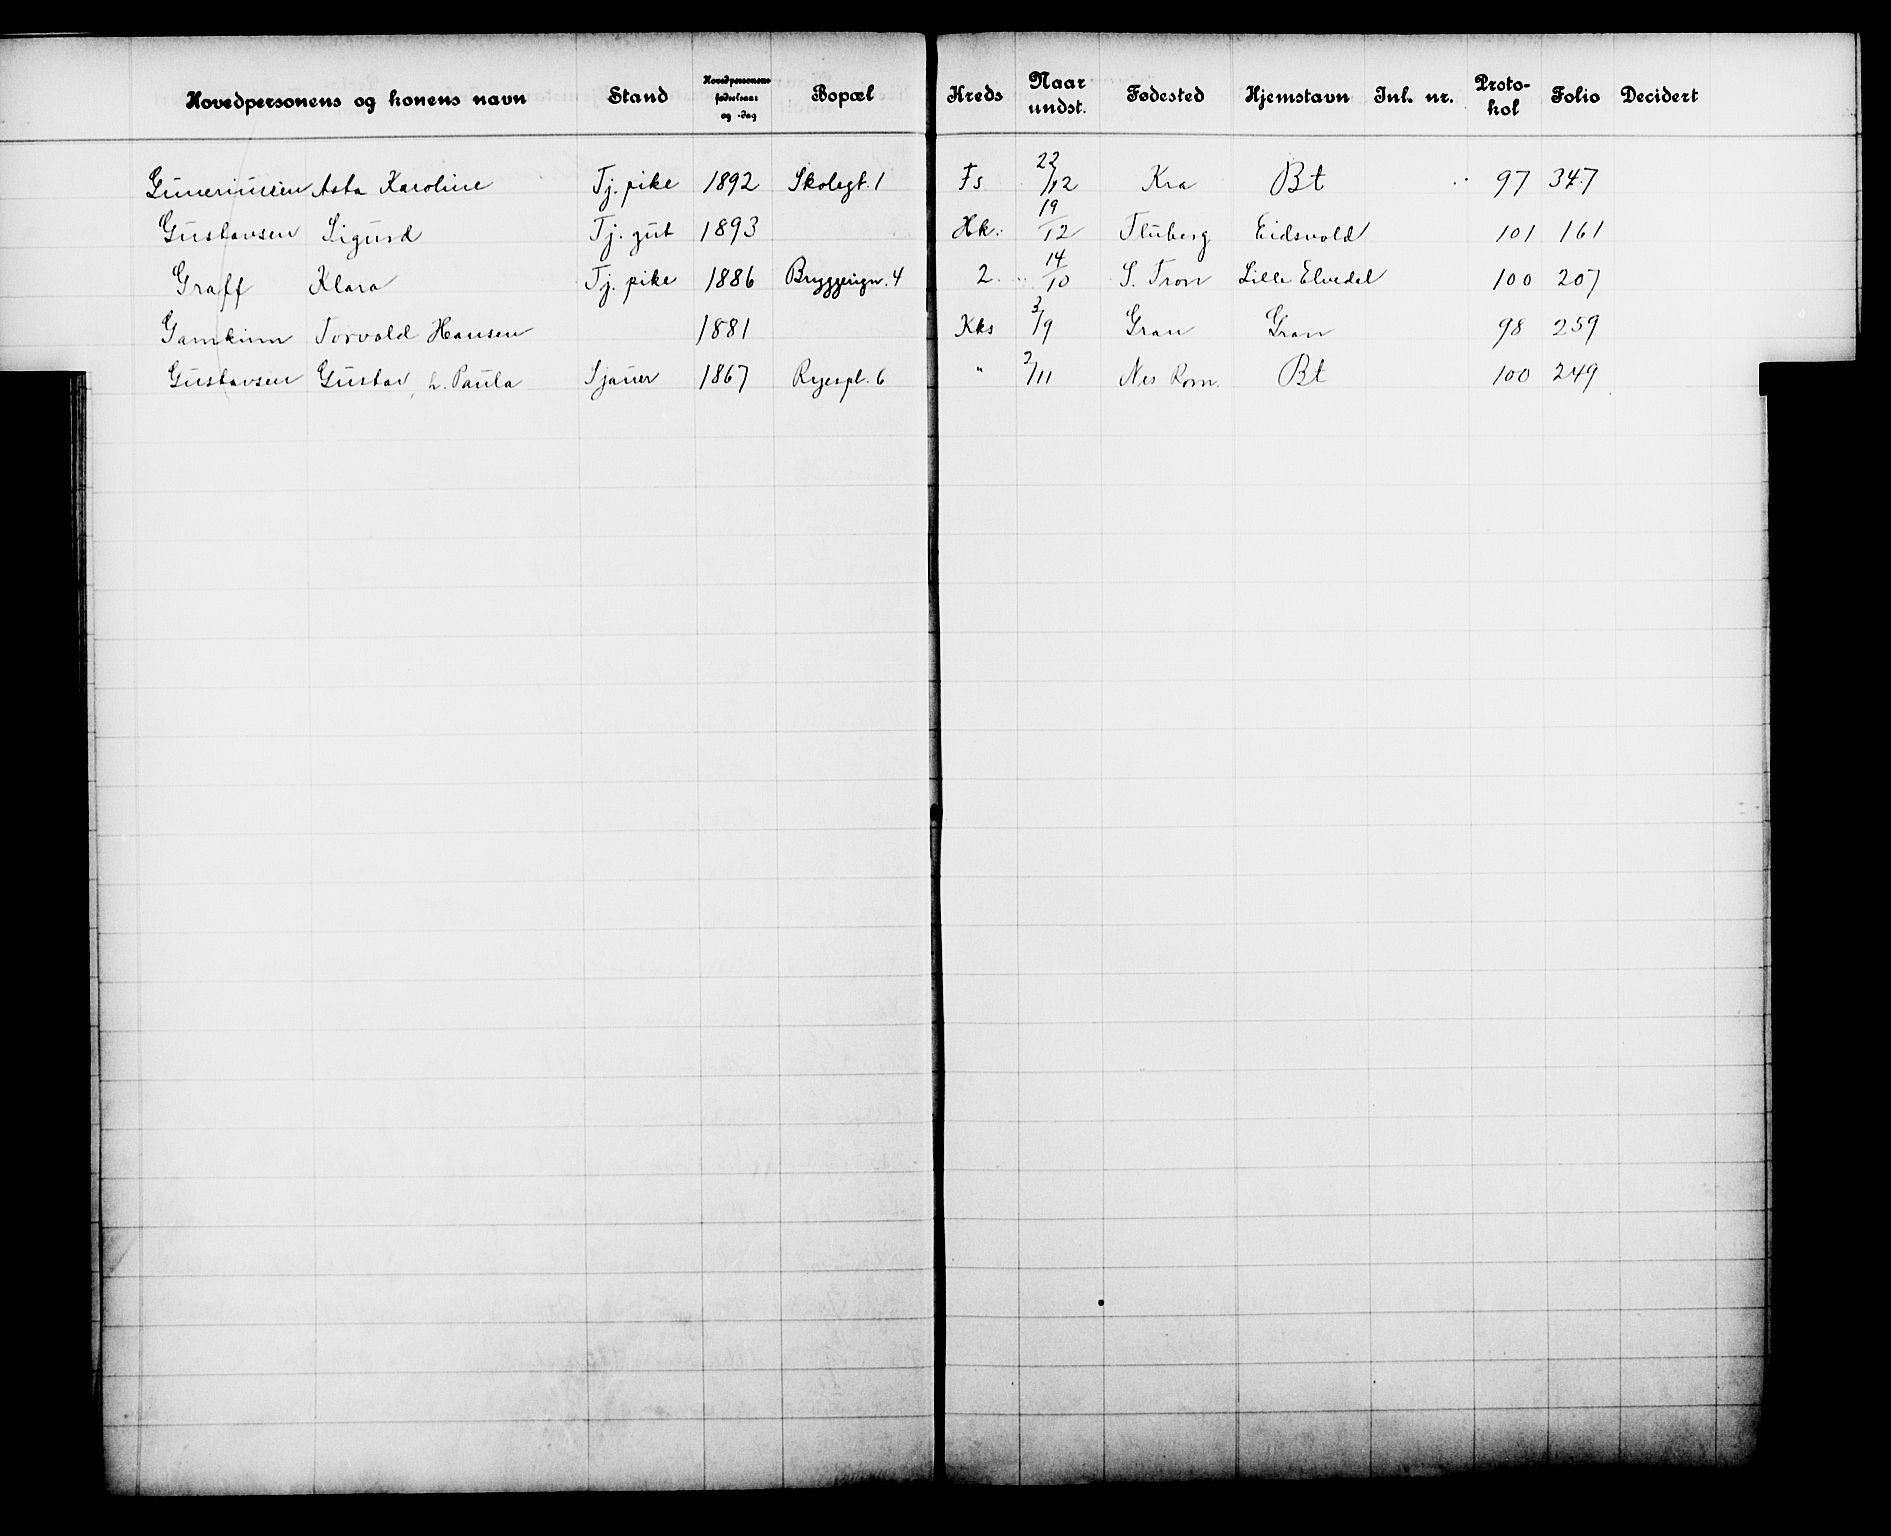 Hovedpersonens og konens navn Stand Hovedpersonens fødselsaar og -dag Bopæl Kreds Naar undst. Fødested Hjemstavn Inl. nr. Proto-kol Folio Decidert
Asta Karoline Tj. pike 1892 Skolegt. 1 Fs 22/12 Kra Bt 97 347
Gustavsen Sigurd Tj. gut 1893 Hk. 19/12 Fluberg Eidsvold 101 161
Graff Klara Tj. pike 1886 Bryggerign. 4 2 14/10 S. Tron Lille Elvedal 100 207
Gamkinn Torvald Hansen 1881 Kks 3/9 Gran Gran 98 259
Gustavsen Gustav, h. Paula Sjauer 1867 Ryespl. 6 " 2/11 Nes Rom. Bt 100 249